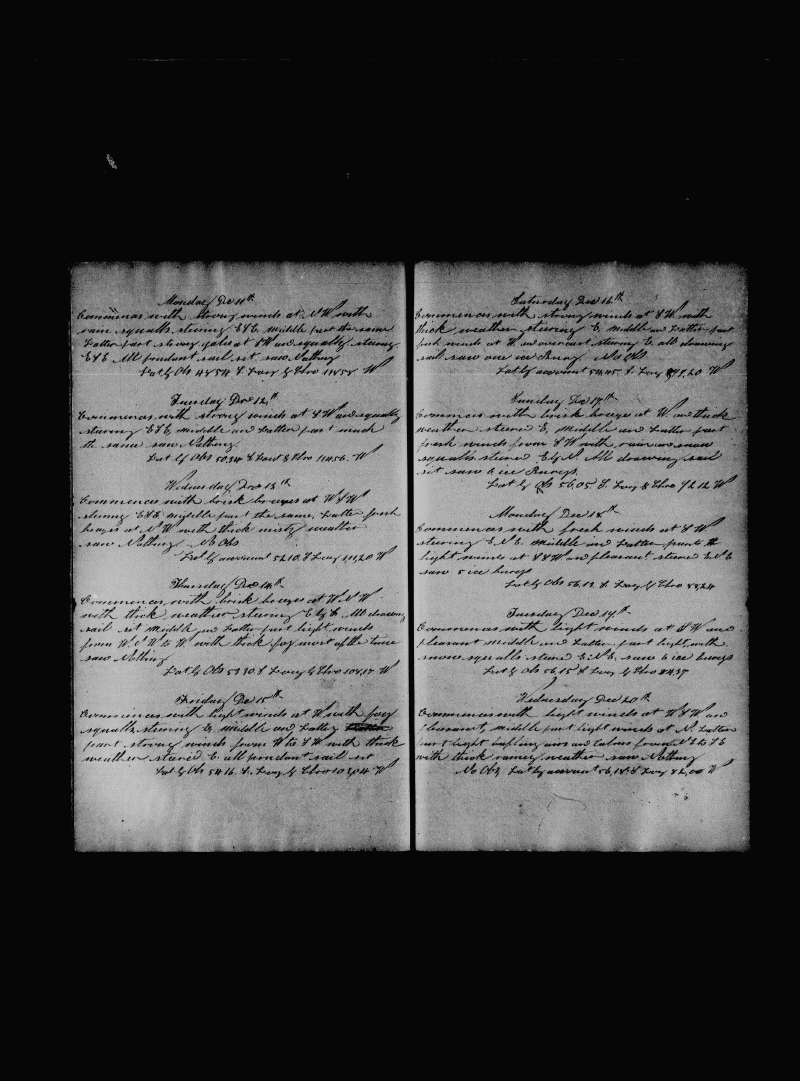 Monday Dec 11th
Commences with strong winds at NW with
rain squalls steering ESE middle part the same
Latter part strong gales at SW and squally steering
ESE All pendant sail set saw Nothing
Lat by Obs 48 54 S Long by Chro 118 58 W
Tuesday Dec 12th
Commences with strong winds at SW and squally
steering ESE middle and Latter part much
the same saw Nothing
Lat by Obs 50,34 S Long by Chro 114 56 W
Wednesday Dec 13th
Commences with brisk breezes at WSW
steering ESE middle part the same, Latter fresh
breezes at NW with thick misty weather
saw Nothing No Obs
Lat by account 52 10 S Long 111,20 W
Thursday Dec 14th
Commences with brisk breezes at WNW
with thick weather steering E by S All drawing
sail set Middle and Latter part light winds
from WNW to N with thick fog most of the time
saw Nothing
Lat by Obs 53 30 S Long by Chro W
Friday Dec 15th
Commences with light winds at W with fog
squalls steering E middle and Latter
part strong winds from W to SW with thick
weather steered E all pendant sail set
Lat by Obs 54 16 S Long by Chro 103,04 W
Saturday Dec 16th
Commences with strong winds at SW with
thick weather steering E. Middle and Latter part
fresh winds at W and overcast steering E all drawing
sail saw one ice Burg No Obs
Lat by account 54,45 S Long 97,20 W
Sunday Dec 17th
Commences with brisk breezes at W and thick
weather steered E, Middle and Latter part
fresh winds from SW with rain and snow
squalls steered E by N. All drawing sail
set saw 6 ice Burgs
Lat by Obs 56,05 S Long by Chro 92 12 W
Monday Dec 18th
Commences with fresh winds at SW
steering ENE Middle and Latter parts
light winds at SSW and pleasant steered ENE
saw 5 ice burgs
Lat by Obs 56,12 S Long by Chro 88,24
Tuesday Dec 19th
Commences with light winds at SW and
pleasant Middle and Latter part light with
snow squalls steered ENE saw 6 ice burgs
Lat by Obs 56,15 S Long by Chro 84 37
Wednesday Dec 20th
Commences with light winds at WSW and
pleasant Middle part light winds at N. Latter
part light baffling airs and Calms from NE to SE
with thick rainey weather saw Nothing
No Obs Lat by account 56,18 S Long 82,00 W